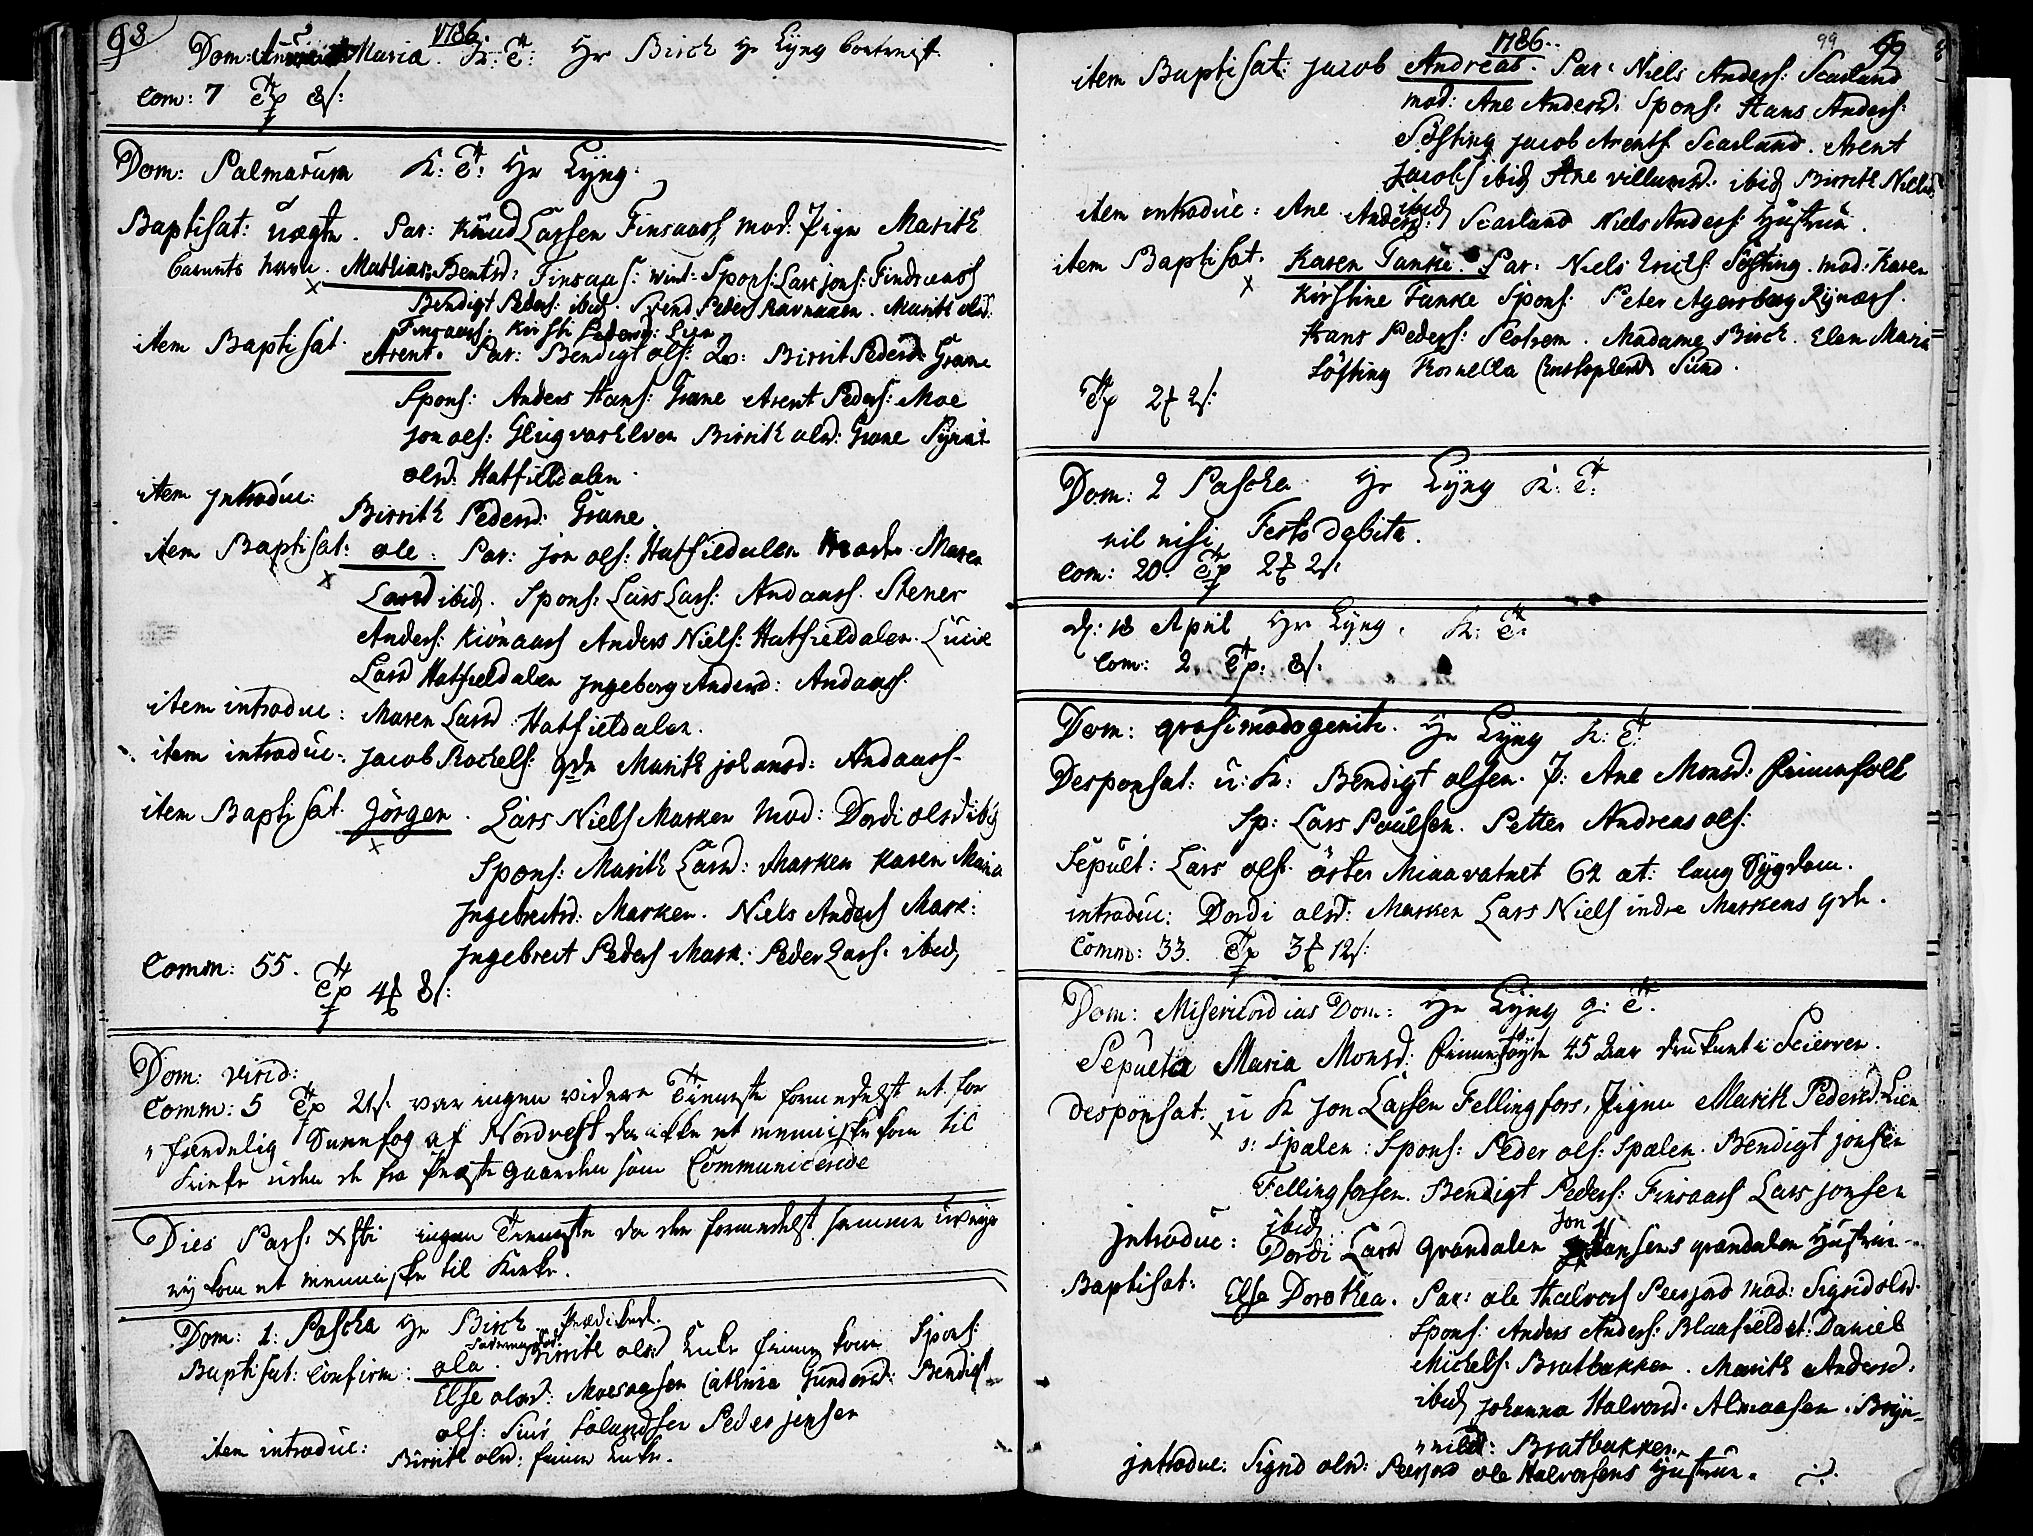 98
1786.
Dom: Maria. K: T: Hr Birch Hr Lyng
Com: 7 Tp 8s:
Dom: Palmarum K: T: Hr Lyng.
Baptisat: uægte. Par: Knud Larsen Finsaas, mod: Pigen Marith
barnets navn. Mathias. Bentsd: Finsaas: Spons: Lars Jons: Findsaas
Bendigt Peders: ibid. Svend Peders Ravnaaen. Marith olsd:
Finsaas: Kirsti Pedersd: Lien
item Baptisat. Arent. Par: Bendigt ols: Birrit Pedersd: Grane
Spons: Anders Hans: Grane Arent Peders: Moe
Jon ols: Birrith olsd: Grane
olsd: Hatfieldalen.
item Introduc: Birrith Pedersd: Grane
item Baptisat: ole. Par: Jon ols: Hatfieldalen Maren
Larsd ibid. Spons: Lars Lars: Andaas. Stener
Anders: Kiønaas Anders Niels: Hatfieldalen. Lucie
Larsd Hatfieldalen Ingeborg Andersd: Andaas.
item introduc: Maren Larsd: Hatfieldalen.
item introduc: Jacob Rochels: qde Marith Johansd: Andaas.
item Baptisat. Jörgen. Lars Niels Marken Mod: Dordi olsd ibid
Spons: Marith Larsd: Marken Karen Maria
Ingebretsd: Marken. Niels Anders Mark:
Ingebret Peders Mark: Peder Lars: ibid
Comm: 55. Tp 4 8s:
Dom: virid:
Comm: 5 Tp 2s. var ingen videre Tieneste formedelst et for
færdelig Sneefog af Nordvest da ikke et menniske kom til
Kirke uden de fra Præstegaarden som Communicerede
Dies Pass: Xsti ingen Tieneste da der formedelst samme uveyr
ey kom et menniske til Kirke.
Dom: 1: Pascha Hr Birch Prædiked.
Baptisat: Confirm: ola. Birrith olsd Enke finne Spons:
Else olsd: Moesaasen Cathrie Gundersd: Bendigt
ols: Peder Jensen
item introduc: Birrith olsd: finne Enke.
1786.
99
99
item Baptisat: Jacob Andreas. Par: Niels Anders: Scarland
mod: Ane Andersd. Spons: Hans Anders:
Søfting Jacob Arents Scarland. Arent
Jacobs ibid Ane villumsd. ibid Birrith Nielsd
ibid
item introduc: Ane Andersd: Scarland Niels Anders: Hustrue.
item Baptisat. Karen Tanke. Par: Niels Erichs Søfting. mod: Karen
Kirstine Tanke Spons: Peter Agersborg Rynæs.
Hans Peders: Madame Birch. Elen Maria
Søfting Kornelia Sund.
Tp 2 2s:
Dom: 2 Pascha. Hr Lyng K: T:
nil nisi Festo debita.
Com: 20. Tp 2 2s.
d: 18 April Hr Lyng. K: T:
Com: 2. Tp: 8s:
Dom: qvasimodogenite. Hr Lyng K: T:
Desponsat: u: K: Bendigt olsen. P: Ane Monsd:
Sp: Lars Paulsen. Petter Andreas ols:
Sepult: Lars ols. öster Miaavatnet 62 æt: lang Sygdom.
introduc: Dordi olsd: Marken Lars Niels indre Markens qde.
Comm: 33. Tp 3 12s:
Dom: Misericordias Dom: Hr Lyng g: T.
Sepulta Maria Monsd: 45 Aar druknet i Seierren.
desponsat: u K Jon Lassen Fellingfors, Pigen Marith Pedersd: Lien
Spalen: Spons: Peder ols: Spalen. Bendigt Jonsen
Fellingforsen. Bendigt Peders: Finsaas Lars Jonsen
ibid
Introduc: Dordi Larsd Grandalen Jon Hansens grandalen Hustrue.
Baptisat: Else Dorothea. Par: ole Halvors Mod: Sigrid olsd.
Spons: Anders Anders: Blaafieldet. Daniel
Michels: Bratbakken. Marith Andersd.
ibid Johanna Halvorsd. Almaasen. Bryn-
nild: Bratbakken.
introduc: Sigrid olsd: ole Halvorsens Hustrue.